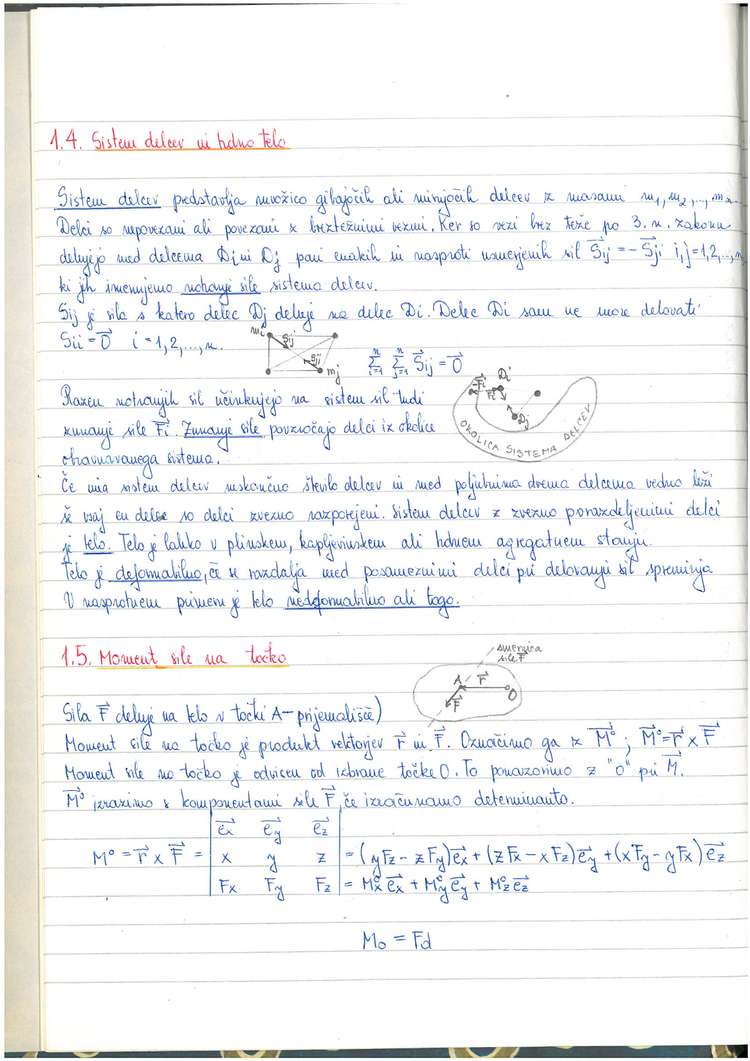 1.4. Sistem delcev in trdno telo
Sistem delcev predstavlja množico gibajočih ali mirujočih delcev z masami m₁, m₂, ..., mₙ
Delci so nepovezani ali povezani z breztežnimi vezmi. Ker so vezi brez teže po 3. n. zakonu
delujejo med delcema Di in Dj pari enakih in nasproti usmerjenih sil S⃗ij = -S⃗ji i,j=1,2,...,n
ki jih imenujemo notranje sile sistema delcev.
Sij je sila s katero delec Dj deluje na delec Di. Delec Di sam ne more delovati
Sii = 0⃗ i = 1,2,...,n.
mi
S⃗ij
S⃗ji
mj
n∑i=1 n∑j=1 S⃗ij = 0⃗
Razen notranjih sil učinkujejo na sistem sil tudi
zunanje sile F⃗i. Zunanje sile povzročajo delci iz okolice
obravnavanega sistema.
Di
F⃗i
Dj
OKOLICA SISTEMA DELCEV
Če ima sistem delcev neskončno število delcev in med poljubnima dvema delcema vedno leži
še vsaj en delec so delci zvezno razporejeni. Sistem delcev z zvezno porazdeljenimi delci
je telo. Telo je lahko v plinskem, kapljevinskem ali trdnem agregatnem stanju.
Telo je deformabilno, če se razdalja med posameznimi delci pri delovanju sil spreminja
V nasprotnem primeru je telo nedeformabilno ali togo.
1.5. Moment sile na točko
smernica
sile F⃗
A r⃗ O
F⃗
Sila F⃗ deluje na telo v točki A - prijemališče)
Moment sile na točko je produkt vektorjev r⃗ in F⃗. Označimo ga z M⃗° ; M⃗° = r⃗ x F⃗
Moment sile na točko je odvisen od izbrane točke O. To ponazorimo z "o" pri M⃗.
M⃗° izrazimo s komponentami sile F⃗, če izračunamo determinanto.
e⃗x e⃗y e⃗z
M° = r⃗ x F⃗ = x y z = (yFz - zFy)e⃗x + (zFx - xFz)e⃗y + (xFy - yFx)e⃗z
Fx Fy Fz = M°x e⃗x + M°y e⃗y + M°z e⃗z
Mo = Fd